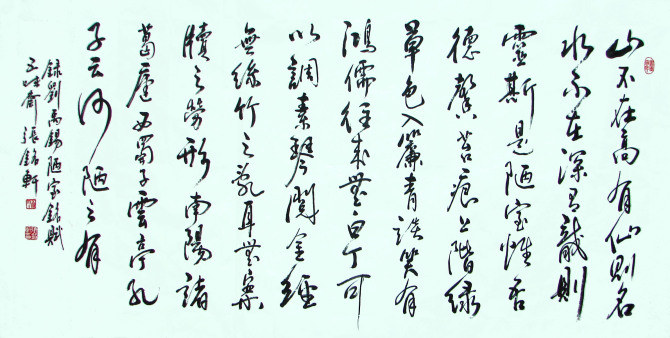 山不在高有仙則名
水不在深有龍則
靈斯是陋室惟吾
德馨苔痕上階緑
草色入簾青談笑有
鴻儒往來無白丁可
以調素琴閱金經
無絲竹之亂耳無案
牘之勞形南陽諸
葛廬西蜀子雲亭孔
子云何陋之有
録劉禹錫陋室銘賦
齋張軒